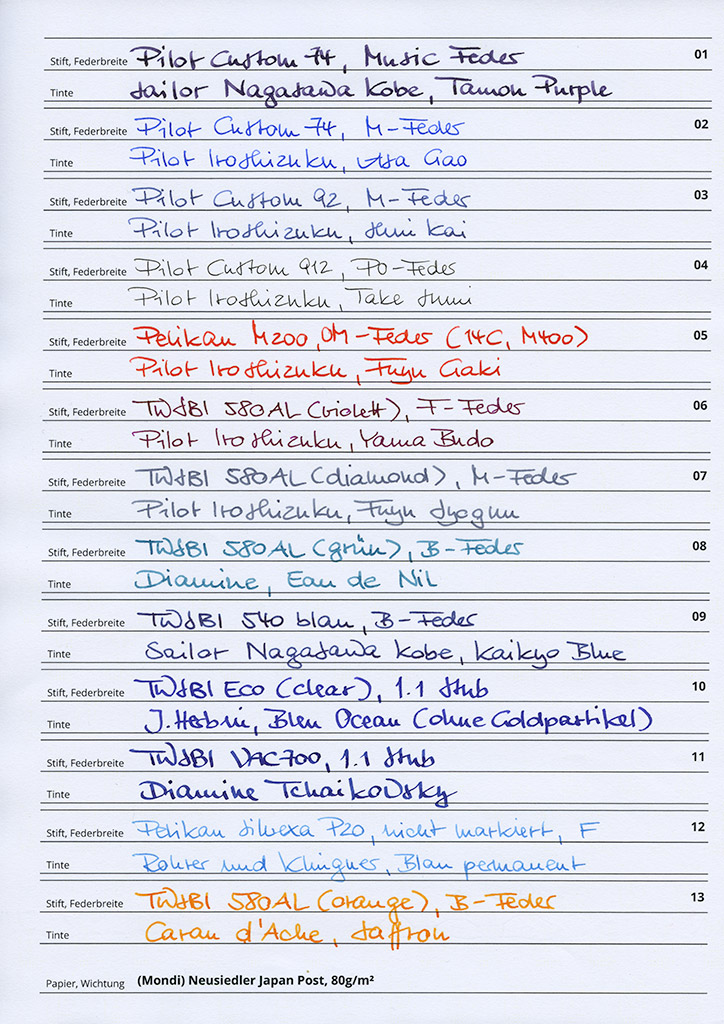 Stift, Federbreite Pilot Custom 74, Music Feder 01
Tinte Sailor Nagasawa Kobe, Tamon Purple
Stift, Federbreite Pilot Custom 74, M-Feder 02
Tinte Pilot Iroshizuku, Asa Gao
Stift, Federbreite Pilot Custom 92, M-Feder 03
Tinte Pilot Iroshizuku, Shin Kai
Stift, Federbreite Pilot Custom 912, PO-Feder 04
Tinte Pilot Iroshizuku, Take Sumi
Stift, Federbreite Pelikan M200, OM-Feder (14C, M400) 05
Tinte Pilot Iroshizuku, Fuyu Gaki
Stift, Federbreite TWSBI 580AL (violett), F-Feder 06
Tinte Pilot Iroshizuku, Yama Budo
Stift, Federbreite TWSBI 580AL (diamond), M-Feder 07
Tinte Pilot Iroshizuku, Fuyu Syogun
Stift, Federbreite TWSBI 580AL (grün), B-Feder 08
Tinte Diamine, Eau de Nil
Stift, Federbreite TWSBI 540 blau, B-Feder 09
Tinte Sailor Nagasawa Kobe, Kaikyo Blue
Stift, Federbreite TWSBI Eco (clear), 1.1 Stub 10
Tinte J. Herbin, Bleu Ocean (ohne Goldpartikel)
Stift, Federbreite TWSBI VAC700, 1.1 Stub 11
Tinte Diamine Tchaikovsky
Stift, Federbreite Pelikan Silvexa P20, nicht markiert, F 12
Tinte Rohrer und Klingner, Blau permanent
Stift, Federbreite TWSBI 580AL (orange), B-Feder 13
Tinte Caran d'Ache, Saffron
Papier, Wichtung (Mondi) Neusiedler Japan Post, 80g/m²